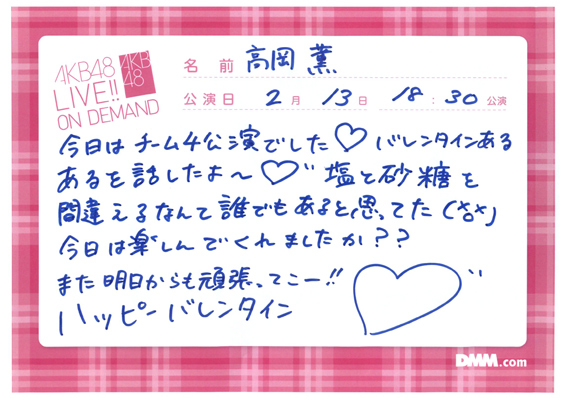 AKB48
LIVE!!
ON DEMAND
AKB
48
名前 高岡 薫
公演日 2月 13日 18:30 公演
今日は チーム4公演でした♡ バレンタインある
あるを話したよ〜♡" 塩と砂糖を
間違えるなんて誰でもあると思ってた(×o×)
今日は楽しんでくれましたか??
また明日からも頑張ってこー!!
ハッピーバレンタイン
DMM.com